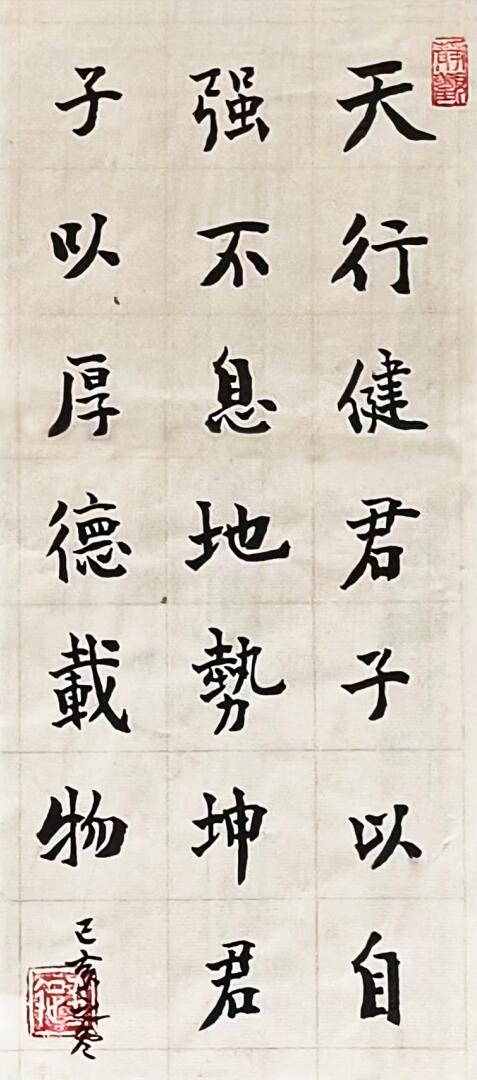 天行健君子以自
强不息地勢坤君
子以厚德載物
己亥